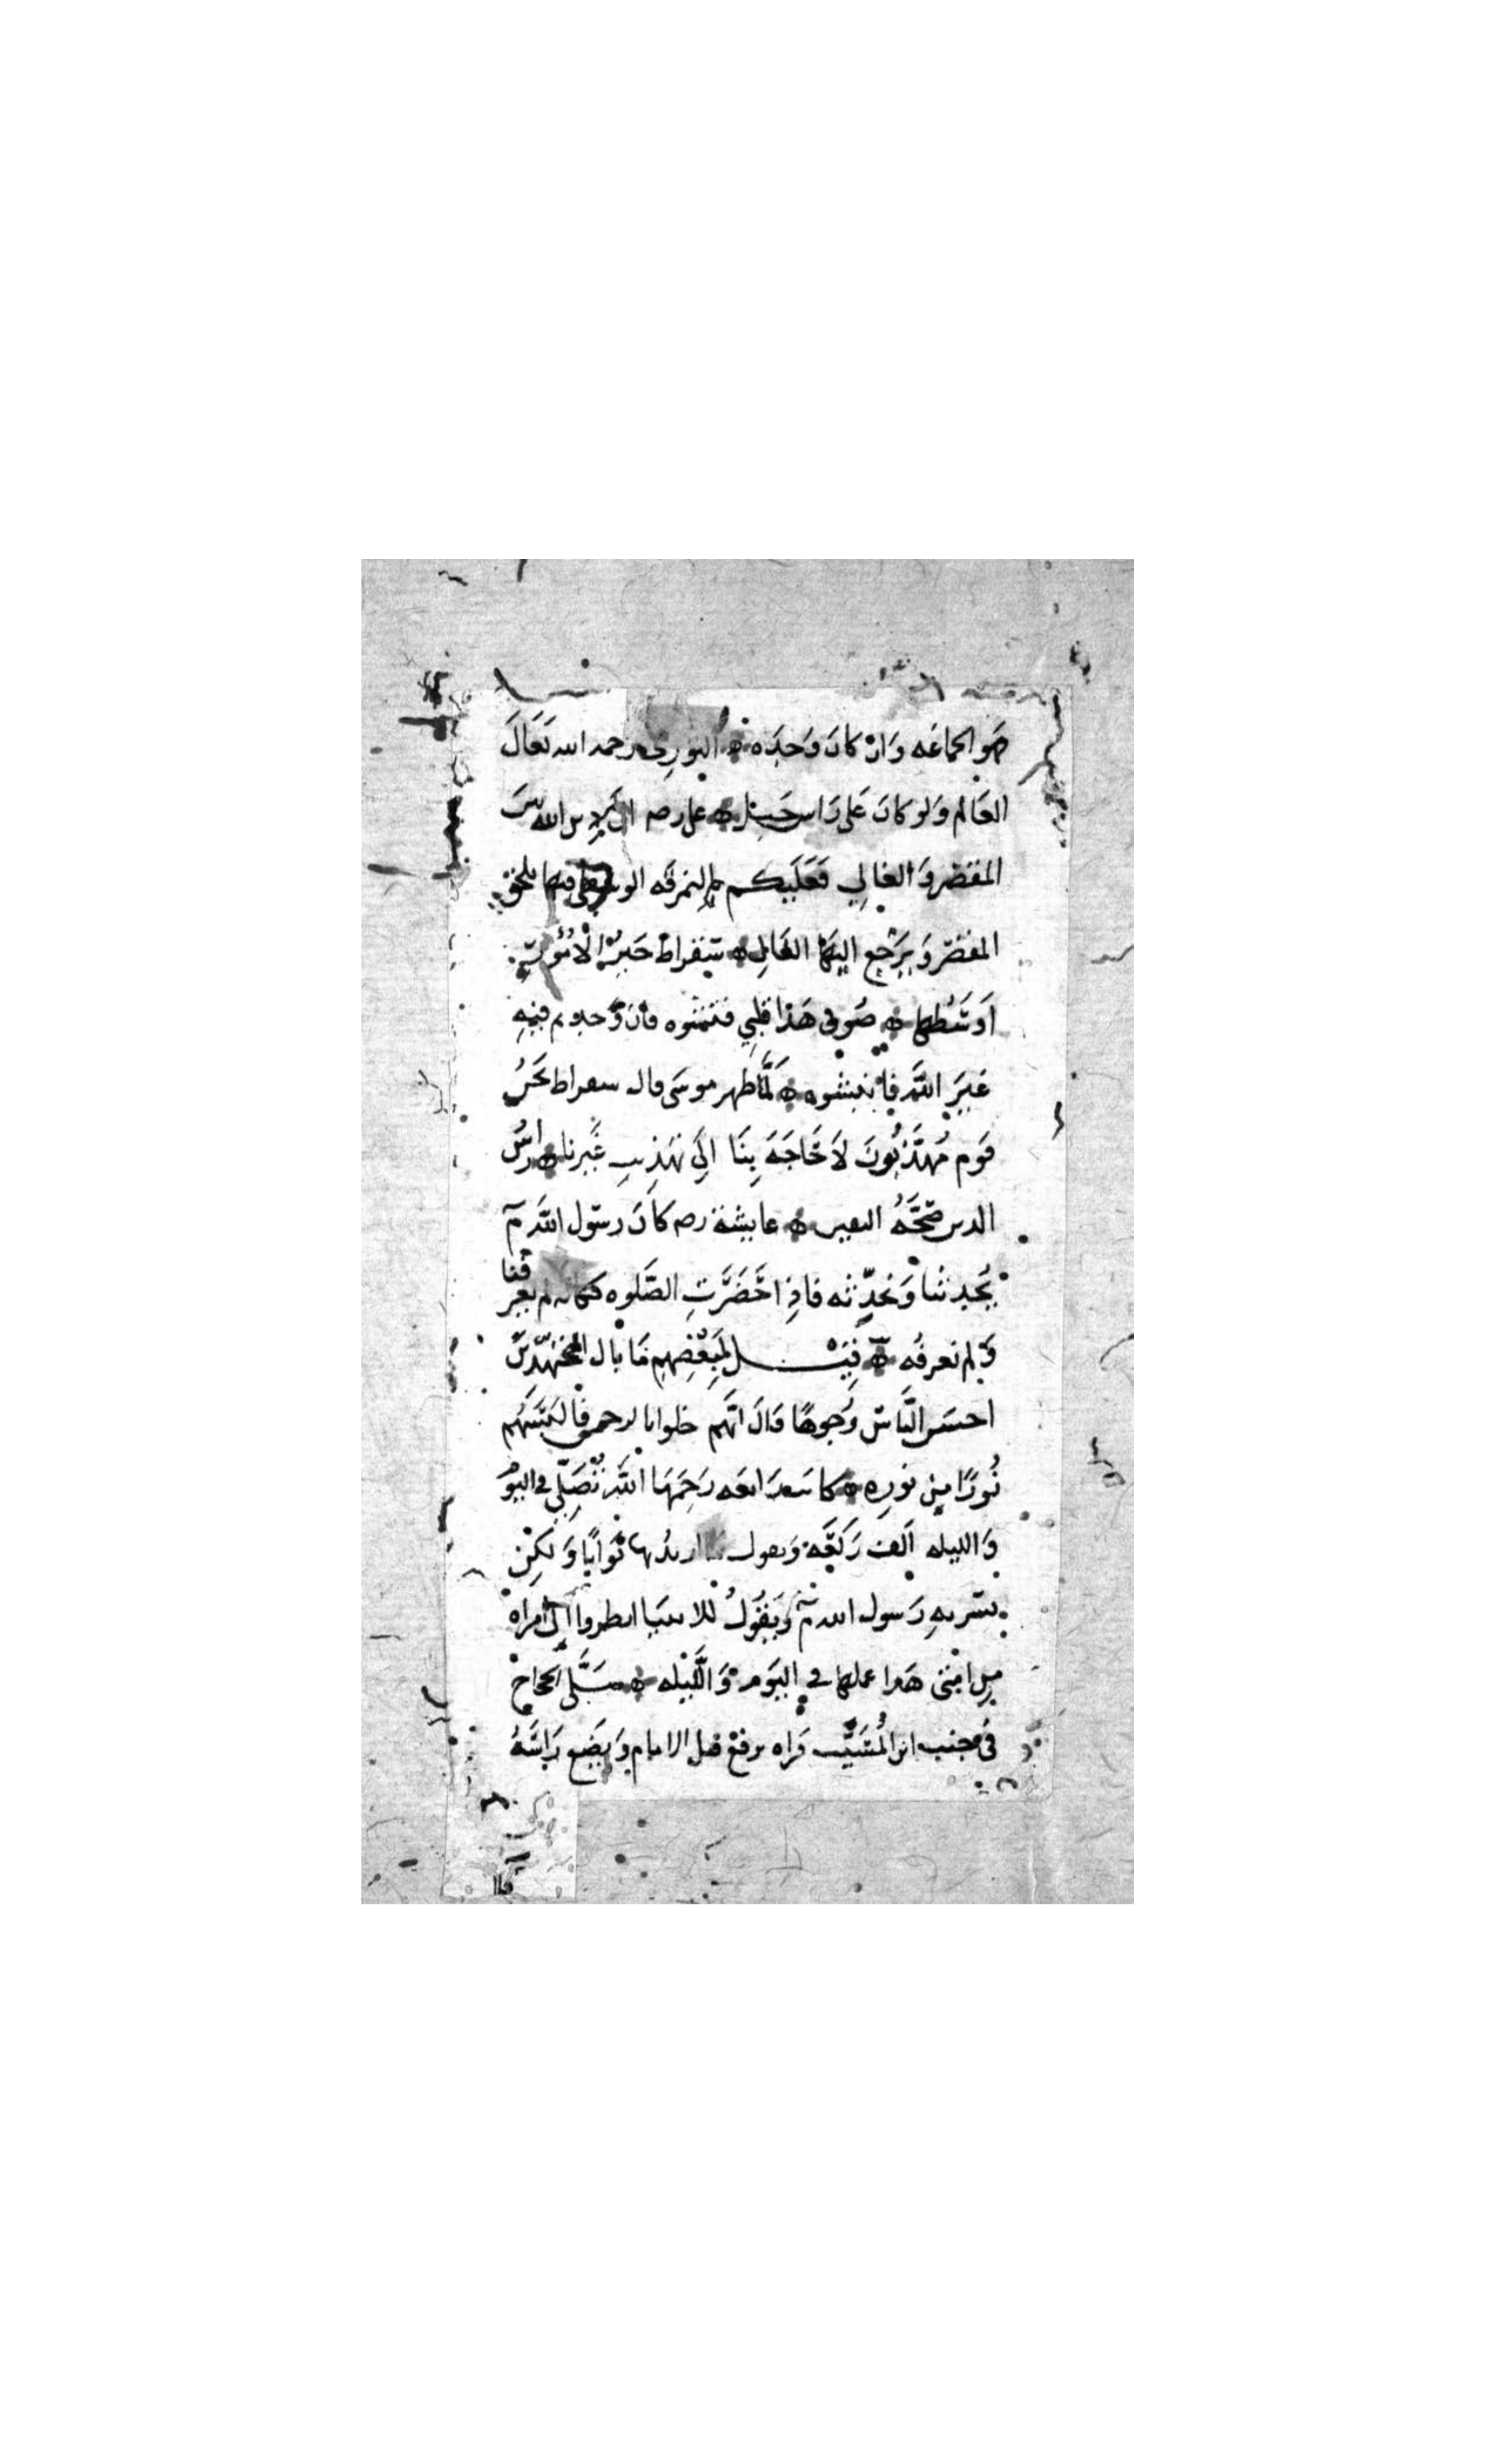 هو الجماعه وان كان وحده ۞ الثوري رحمه الله تعالى
العالم ولو كان على راس جبل ۞ على رضه ان دين الله بين
المقصر والغالي فعليكم بالنمرقه الوسطى فبها يلحق
المقصر ويرجع اليها الغالي ۞ سقراط خير الامور
اوسطها ۞ صوفي هذا قلبي فتشوه فان وجدتم فيه
غير الله فانبشوه ۞ لما ظهر موسى قال سقراط نحن
قوم مهذبون لا حاجة بنا الى تهذيب غيرنا ۞ راس
الدين صحة اليقين ۞ عايشة رضه كان رسول الله م
يحدثنا ونحدثه فاذا حضرت الصلوه فكانه لم يعرفنا
ولم نعرفه ۞ قيل لبعضهم ما بال المتهجدين
احسن الناس وجوها قال انهم خلوا بالرحمن فالبسهم
نورا من نوره ۞ كانت رابعه رحمها الله تصلي في اليوم
والليله الف ركعة وتقول ما اريد بها ثوابا ولكن
يسر به رسول الله م ويقول للانبيا انظروا الى امراة
من امتي هذا عملها في اليوم والليله ۞ صلى الحجاج
في جنب ابن المسيب فراه يرفع قبل الامام ويضع راسه